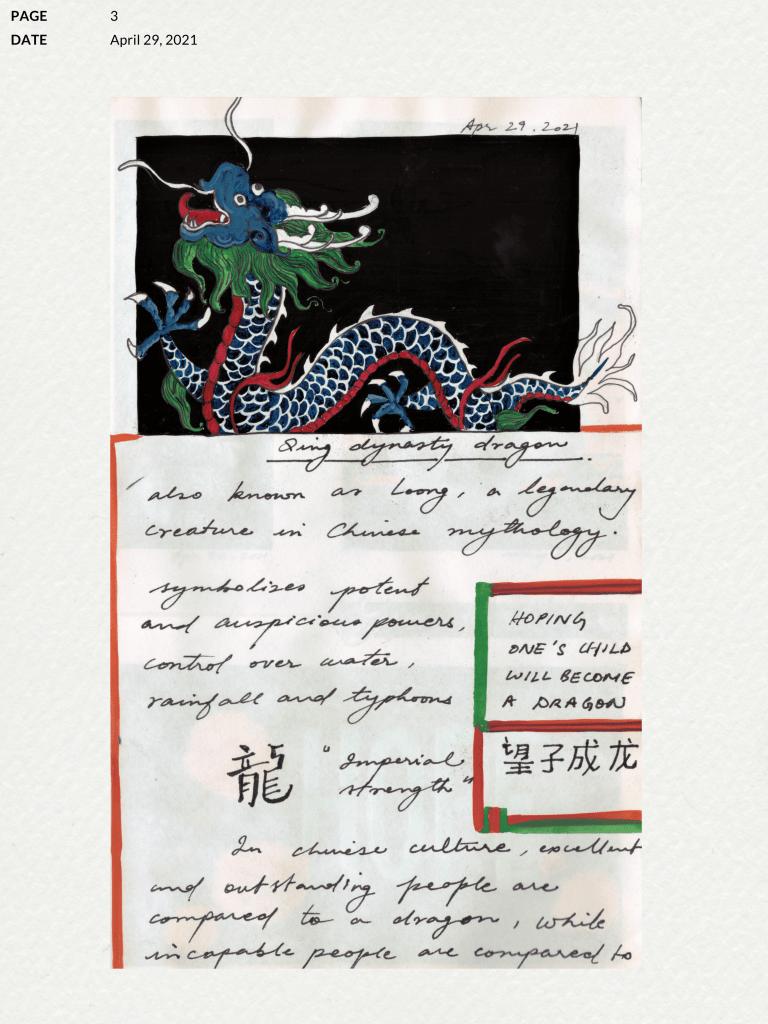 PAGE 3
DATE April 29, 2021
Apr 29. 2021
Qing dynasty dragon.
also known as Loong, a legendary
creature in Chinese mythology.
symbolizes potent
and auspicious powers,
control over water,
rainfall and typhoons
HOPING
ONE'S CHILD
WILL BECOME
A DRAGON
望子成龙
龍 "Imperial
strength"
In chinese culture, excellent
and outstanding people are
compared to a dragon, while
incapable people are compared to